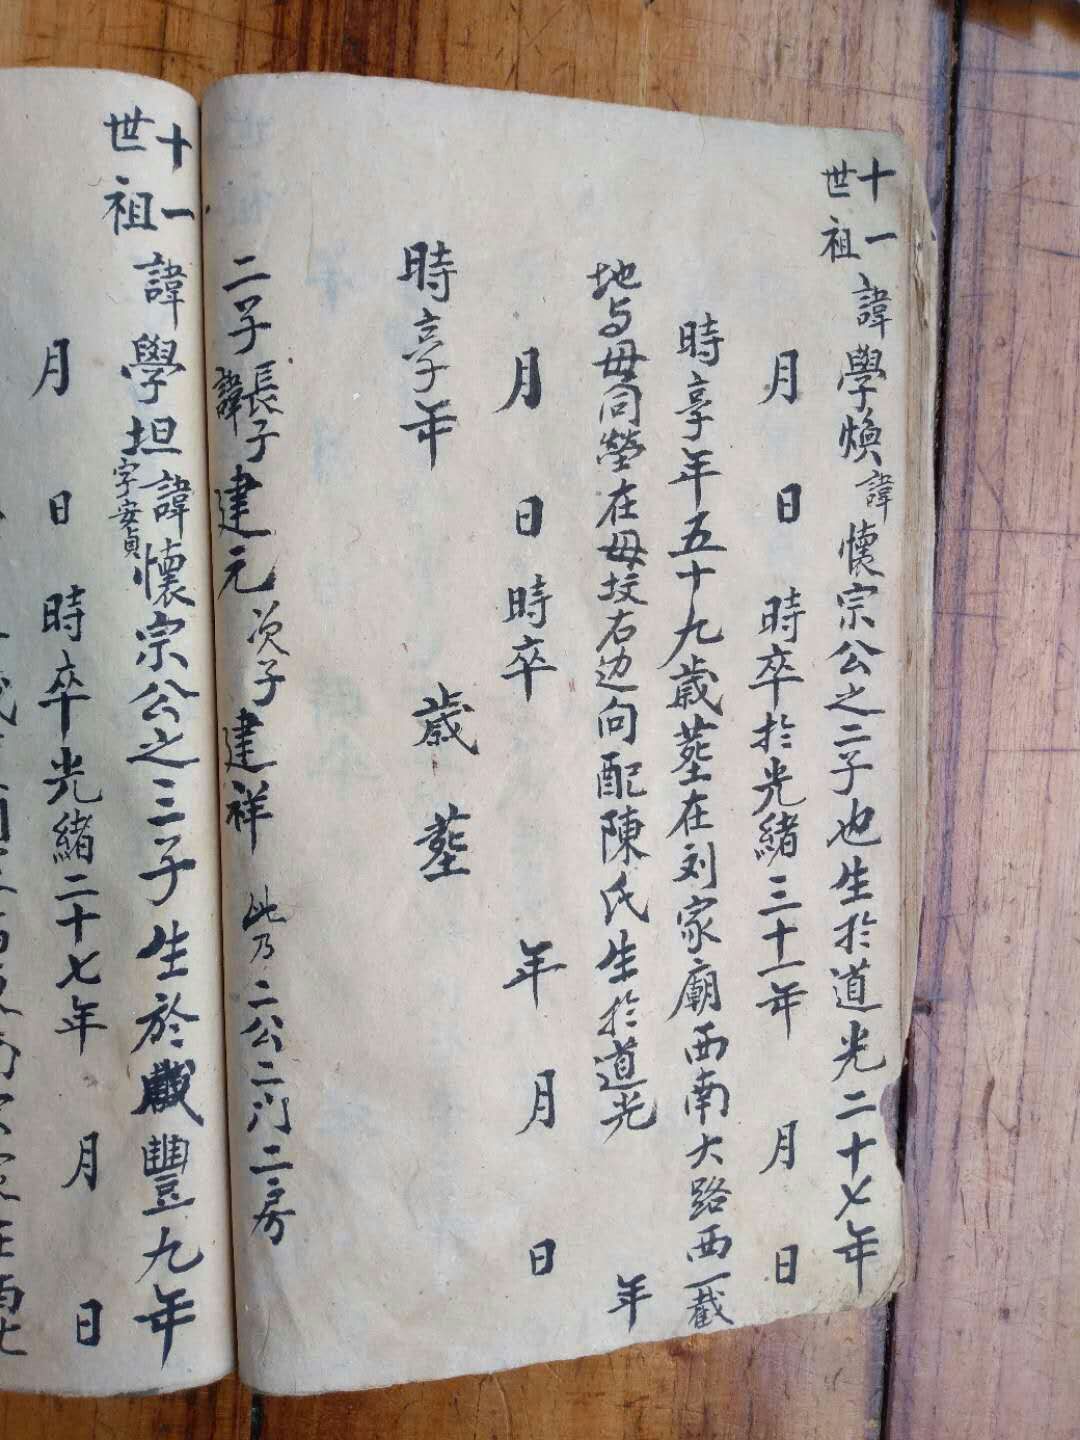 十一世祖 諱學煥諱懷宗公之二子也生於道光二十七年
月 日 時卒於光緒三十一年 月 日
時享年五十九歲塟在刘家廟西南大路西一截
地与母同塋在母坟右边向配陳氏生於道光 年
月 日時卒 年 月 日
時享年 歲 塟
二子長子諱建元次子建祥 此乃二公二门二房
十一世祖 諱學坦字安貞諱懷宗公之三子生於咸豐九年
月 日 時卒光緒二十七年 月 日